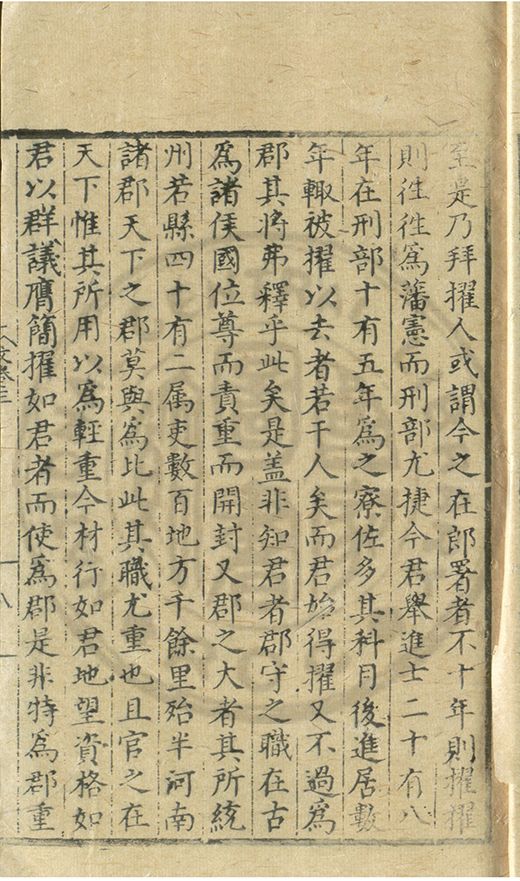 至是乃拜擢人或謂今之在郎署者不十年則擢擢
則徃徃爲藩憲而刑部尤捷今君舉進士二十有八
年在刑部十有五年爲之寮佐多其科目後進居數
年輙被擢以去者若干人矣而君始得擢又不過爲
郡其將弗釋乎此矣是盖非知君者郡守之職在古
爲諸侯國位尊而責重而開封又郡之大者其所統
州若縣四十有二属吏數百地方千餘里殆半河南
諸郡天下之郡莫與爲比此其職尤重也且官之在
天下惟其所用以爲輕重今材行如君地望資格如
君以群議膺簡擢如君者而使爲郡是非特爲郡重